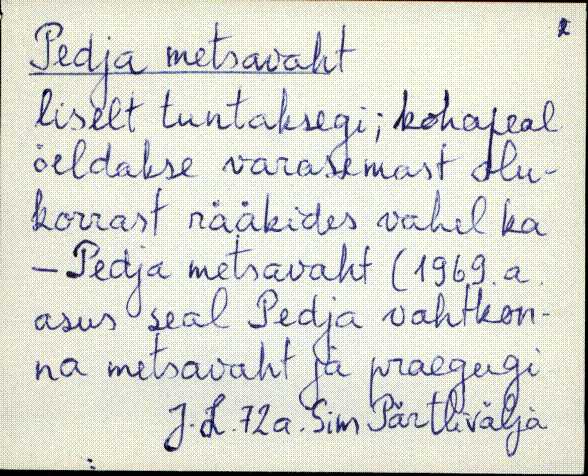 2
Pedja metsavaht
liselt tuntaksegi; kohapeal
öeldakse varasemast olu-
korrast rääkides vahel ka
– Pedja metsavaht (1969. a.
asus seal Pedja vahtkon-
na metsavaht ja praegugi
J. L. 72 a. Sim Pärtlivälja